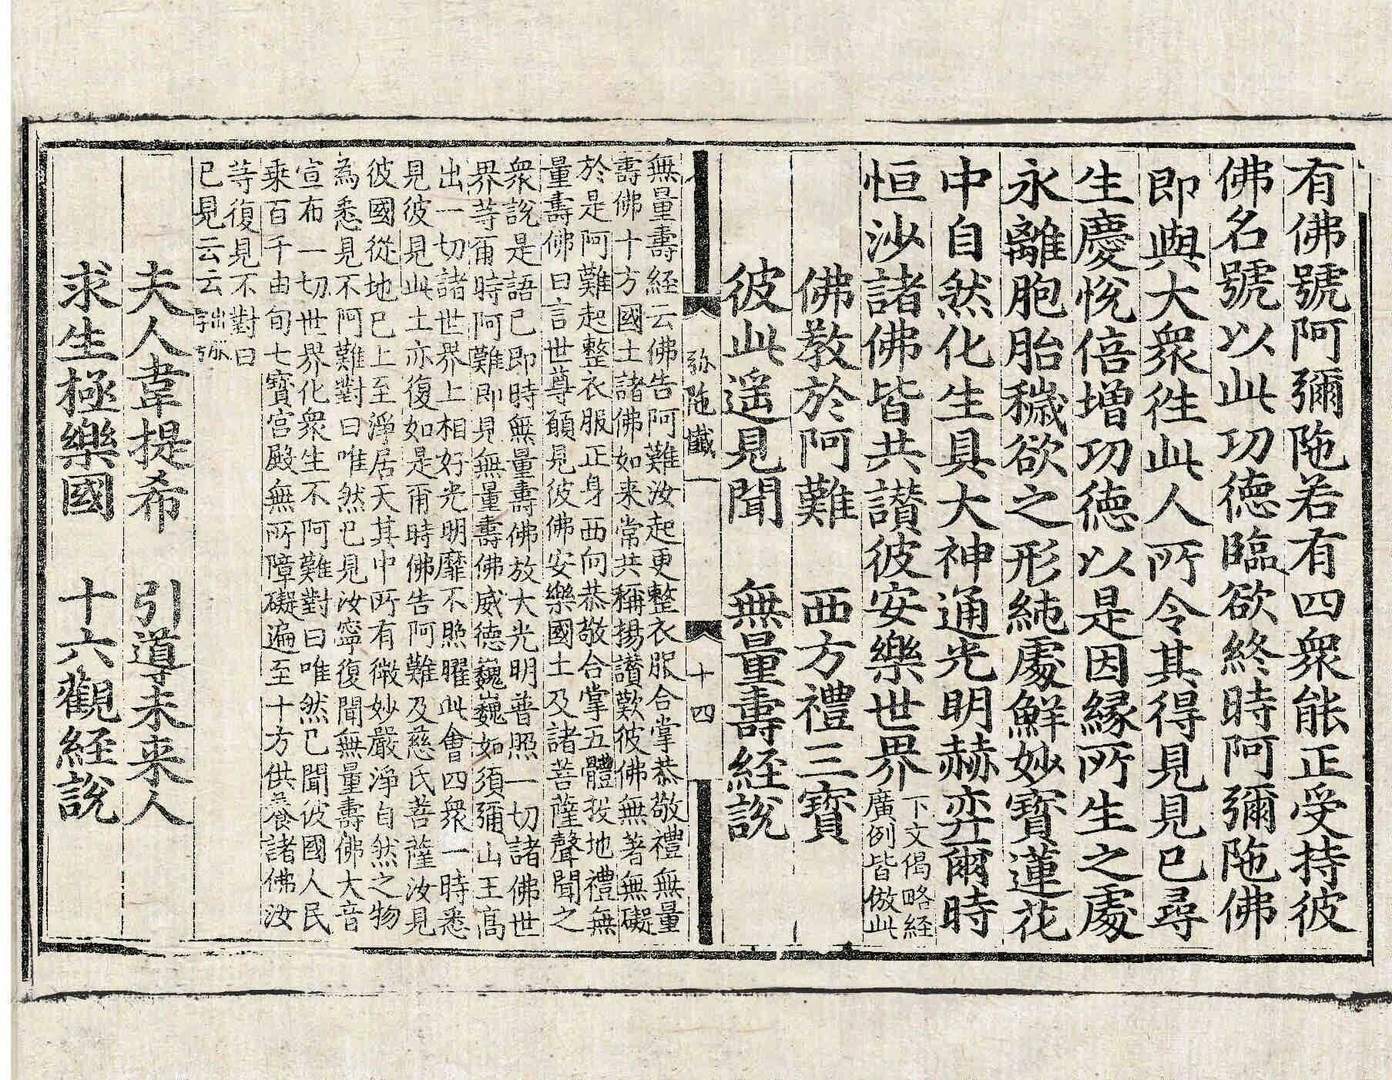 有佛號阿彌陁若有四衆能正受持彼
佛名號以此功德臨欲終時阿彌陁佛
即與大衆徃此人所令其得見見已尋
生慶悅倍增功德以是因緣所生之處
永離胞胎穢欲之形純處鮮妙寶蓮花
中自然化生具大神通光明赫弈爾時
恒沙諸佛皆共讃彼安樂世界下文偈略経
廣例皆倣此
佛教於阿難　西方禮三寳
彼此遥見聞　無量壽経說
弥陁懺一　十四
無量壽経云佛告阿難汝起更整衣服合掌恭敬禮無量
壽佛十方國土諸佛如来常共稱揚讃歎彼佛無著無礙
於是阿難起整衣服正身西向恭敬合掌五體投地禮無
量壽佛曰言世尊願見彼佛安樂國土及諸菩薩聲聞之
衆說是語已即時無量壽佛放大光明普照一切諸佛世
界等爾時阿難即見無量壽佛威德巍巍如須彌山王高
出一切諸世界上相好光明靡不照曜此會四衆一時悉
見彼見此土亦復如是爾時佛告阿難及慈氏菩薩汝見
彼國從地已上至淨居天其中所有微妙嚴淨自然之物
為悉見不阿難對曰唯然已見汝寧復聞無量壽佛大音
宣布一切世界化衆生不阿難對曰唯然已聞彼國人民
乗百千由旬七寳宫殿無所障礙遍至十方供養諸佛汝
等復見不對曰
已見云云
夫人韋提希　引導未来人
求生極樂國　十六觀経說